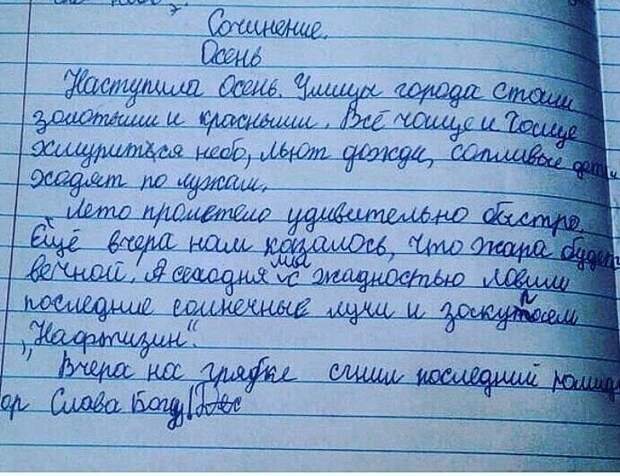 Сочинение.
Осень
Наступила Осень. Улицы города стали
золотыми и красными. Всё чаще и чаще
хмурится небо, льют дожди, сопливые дети
ходят по лужам.
Лето пролетело удивительно быстро.
Ещё вчера нам казалось, что жара будет
вечной. А сегодня мы с жадностью ловим
последние солнечные лучи и закупаем
„Нафтизин".
Вчера на грядке сгнил последний помид
ор Слава Богу!